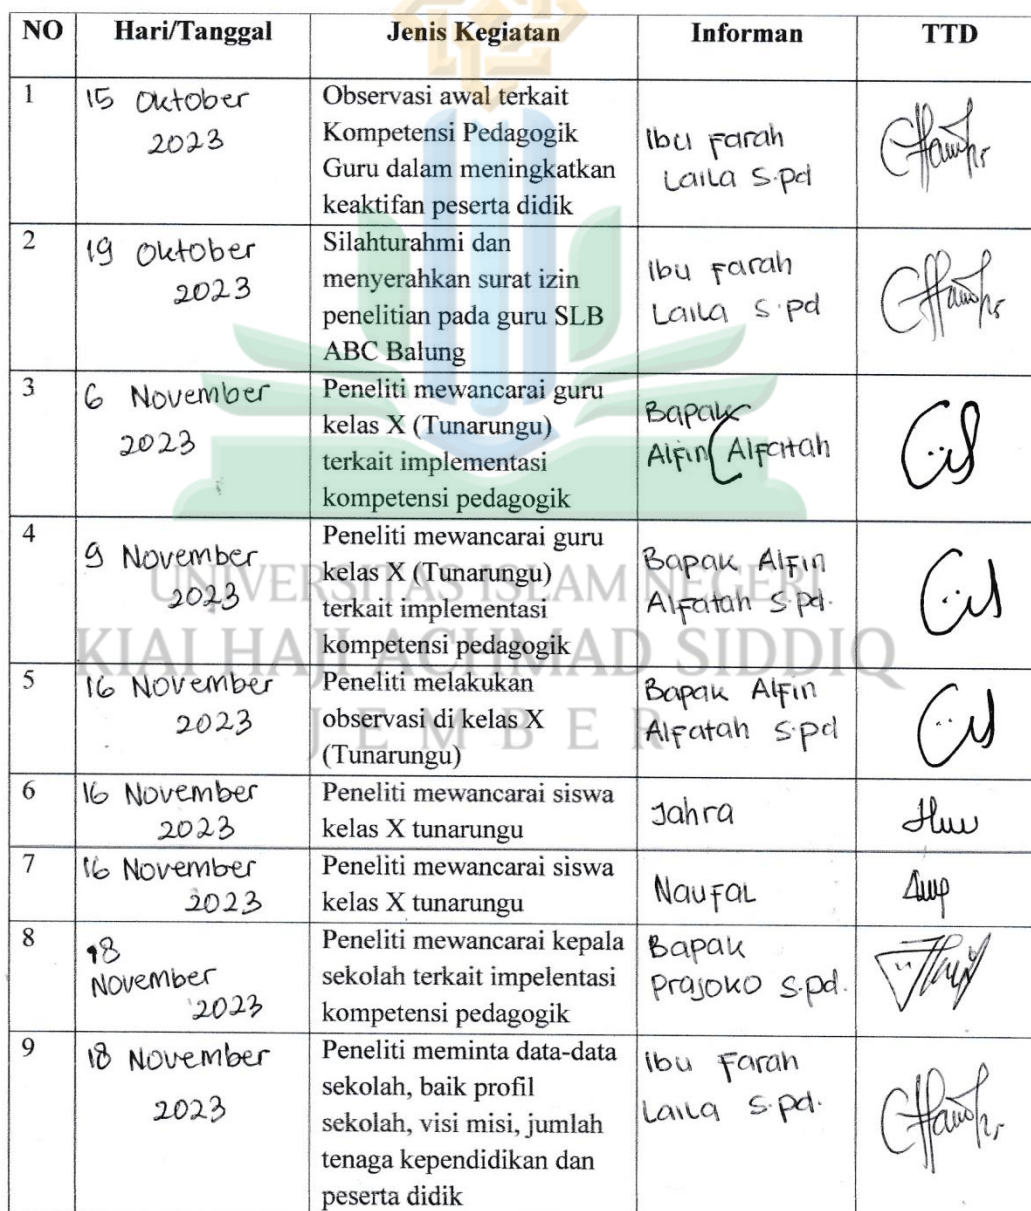 NO Hari/Tanggal Jenis Kegiatan Informan TTD
1
15 Oktober
2023
Observasi awal terkait
Kompetensi Pedagogik
Guru dalam meningkatkan
keaktifan peserta didik
Ibu Farah
Laila S.pd
2
19 Oktober
2023
Silahturahmi dan
menyerahkan surat izin
penelitian pada guru SLB
ABC Balung
Ibu Farah
Laila S.pd
3
6 November
2023
Peneliti mewancarai guru
kelas X (Tunarungu)
terkait implementasi
kompetensi pedagogik
Bapak
Alfin Alfatah
4
9 November
2023
Peneliti mewancarai guru
kelas X (Tunarungu)
terkait implementasi
kompetensi pedagogik
Bapak Alfin
Alfatah S.pd.
5
16 November
2023
Peneliti melakukan
observasi di kelas X
(Tunarungu)
Bapak Alfin
Alfatah S.pd
6
16 November
2023
Peneliti mewancarai siswa
kelas X tunarungu
Jahra
7
16 November
2023
Peneliti mewancarai siswa
kelas X tunarungu
Naufal
8
18
November
2023
Peneliti mewancarai kepala
sekolah terkait impelentasi
kompetensi pedagogik
Bapak
Prajoko S.pd.
9
18 November
2023
Peneliti meminta data-data
sekolah, baik profil
sekolah, visi misi, jumlah
tenaga kependidikan dan
peserta didik
Ibu Farah
Laila S.pd.
UNIVERSITAS ISLAM NEGERI
KIAI HAJI ACHMAD SIDDIQ
JEMBER